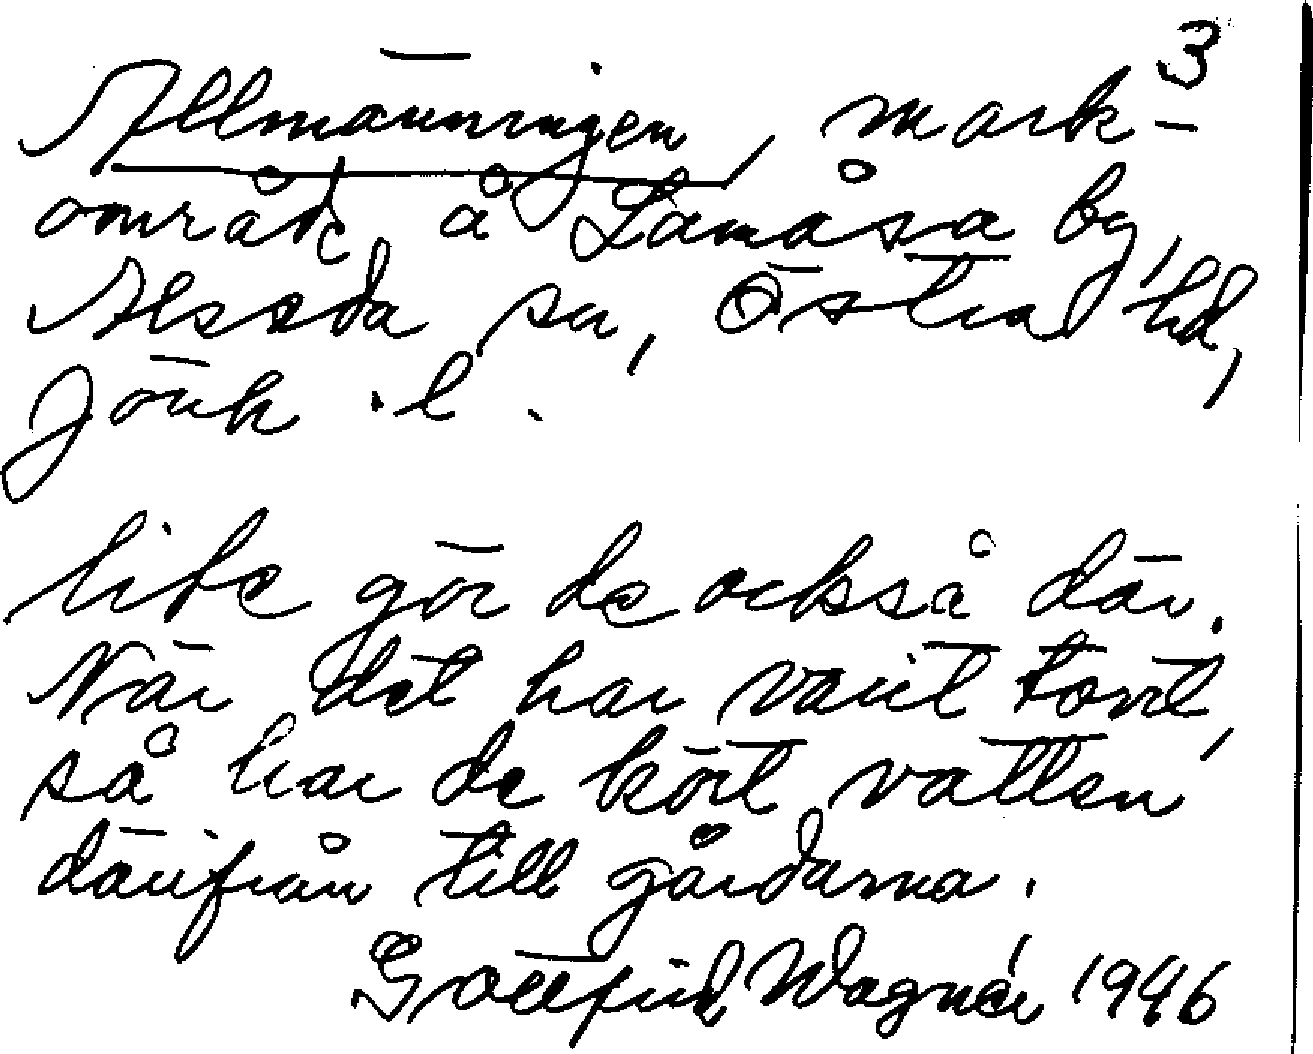 3
Allmänningen, mark-
område å Lamåsa by,
Alseda sn, Östra hd,
Jönk. l.
lite gör de också där.
När det har varit torrt,
så har de kört vatten
därifrån till gårdarna.
Gottfrid Wagnér 1946